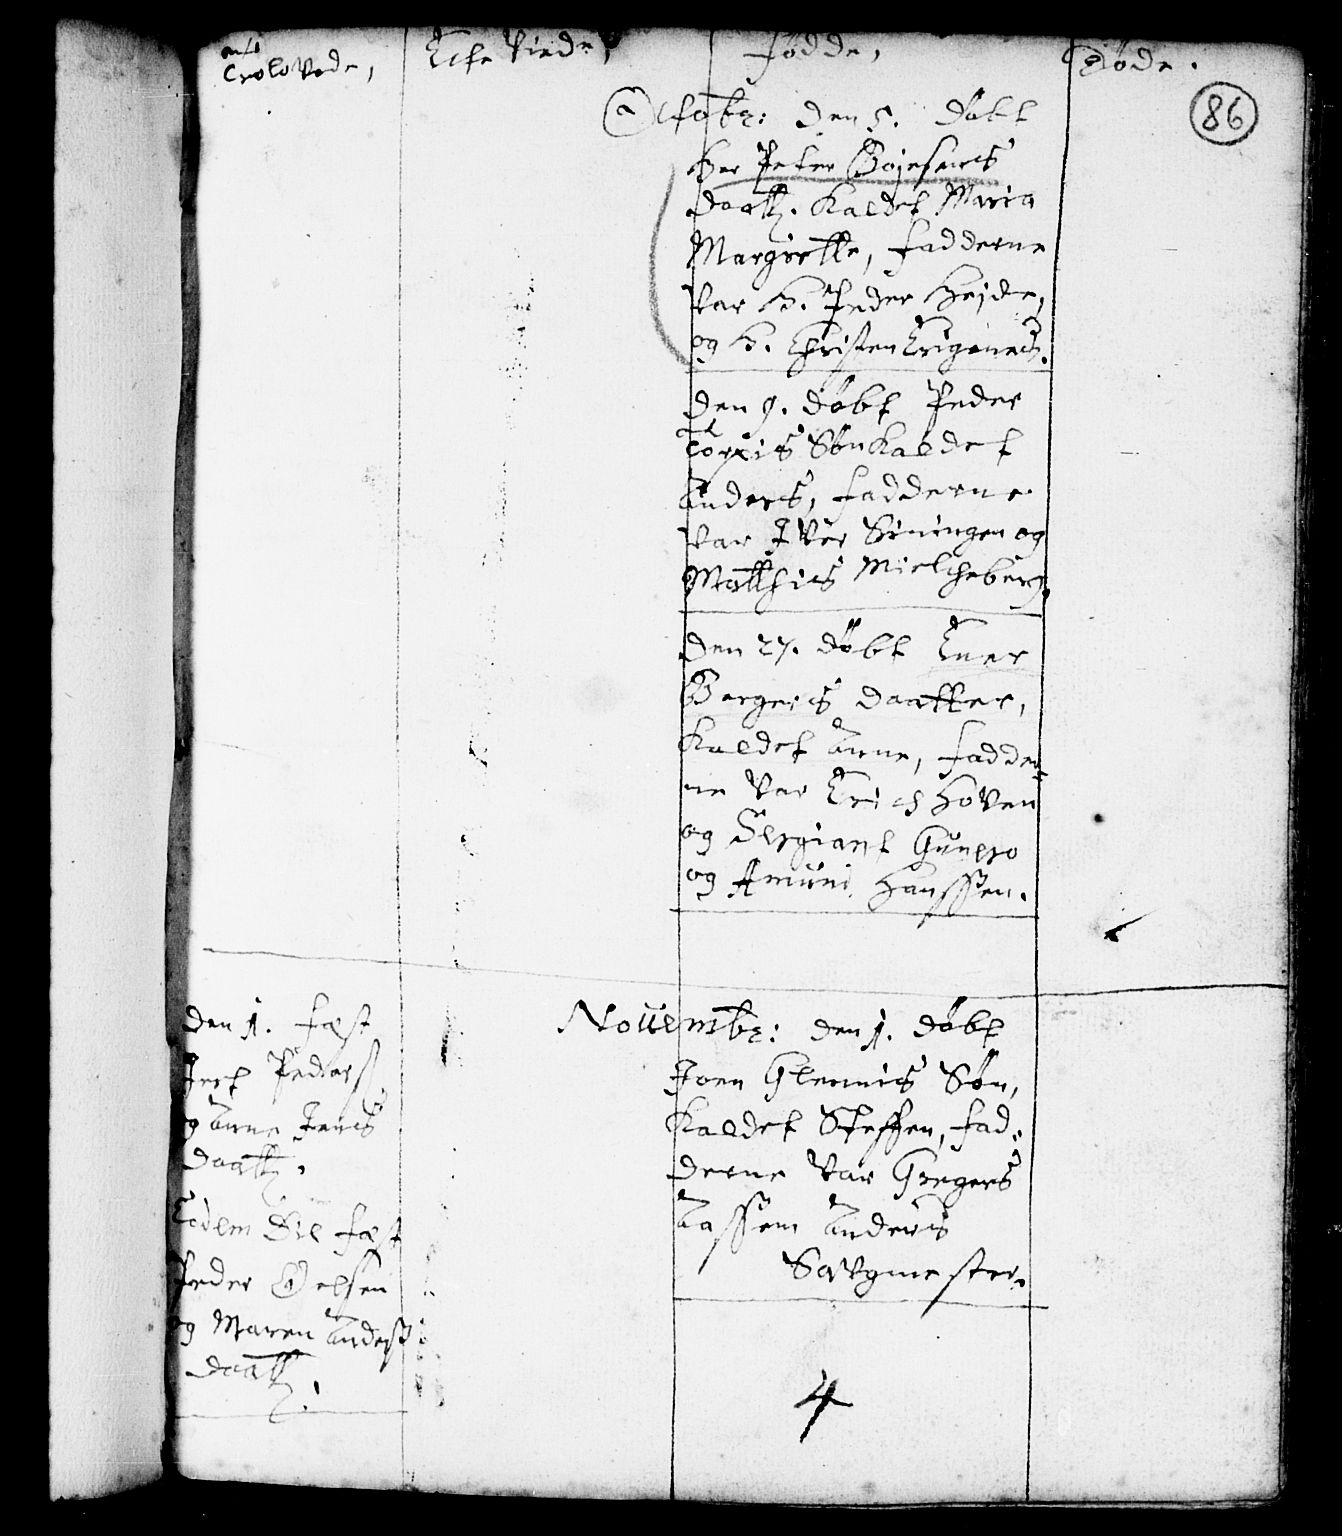 Trolovede,
Echte Viede,
fødde,
Døde.
86
Octobr: den 5. døbt
Her Peter Bojesens
daatt. Kaldet Maria
Margrette, fadderne
var H. Peder Hejde,
og H. Christen
den 9. døbt Peder
Søn Kaldet
Anders, fadderne
var Iver og
Matthis Mielcheberg.
den 27. døbt Ener
Bergens daatter,
Kaldet Anne, fadder-
ne var Erich Hoven
og Sergiant
og Amund Hanssen.
den 1. fæst
Pederss
og Anne Jens
daatt.
Eodem Die fæst
Peder Oelsen
og Maren Anders
daatt.
Novembr: den 1. døbt
Joen Søn,
Kaldet Steffen, fad-
derne var Gregers
Lassen Anders
Savgmester.
4